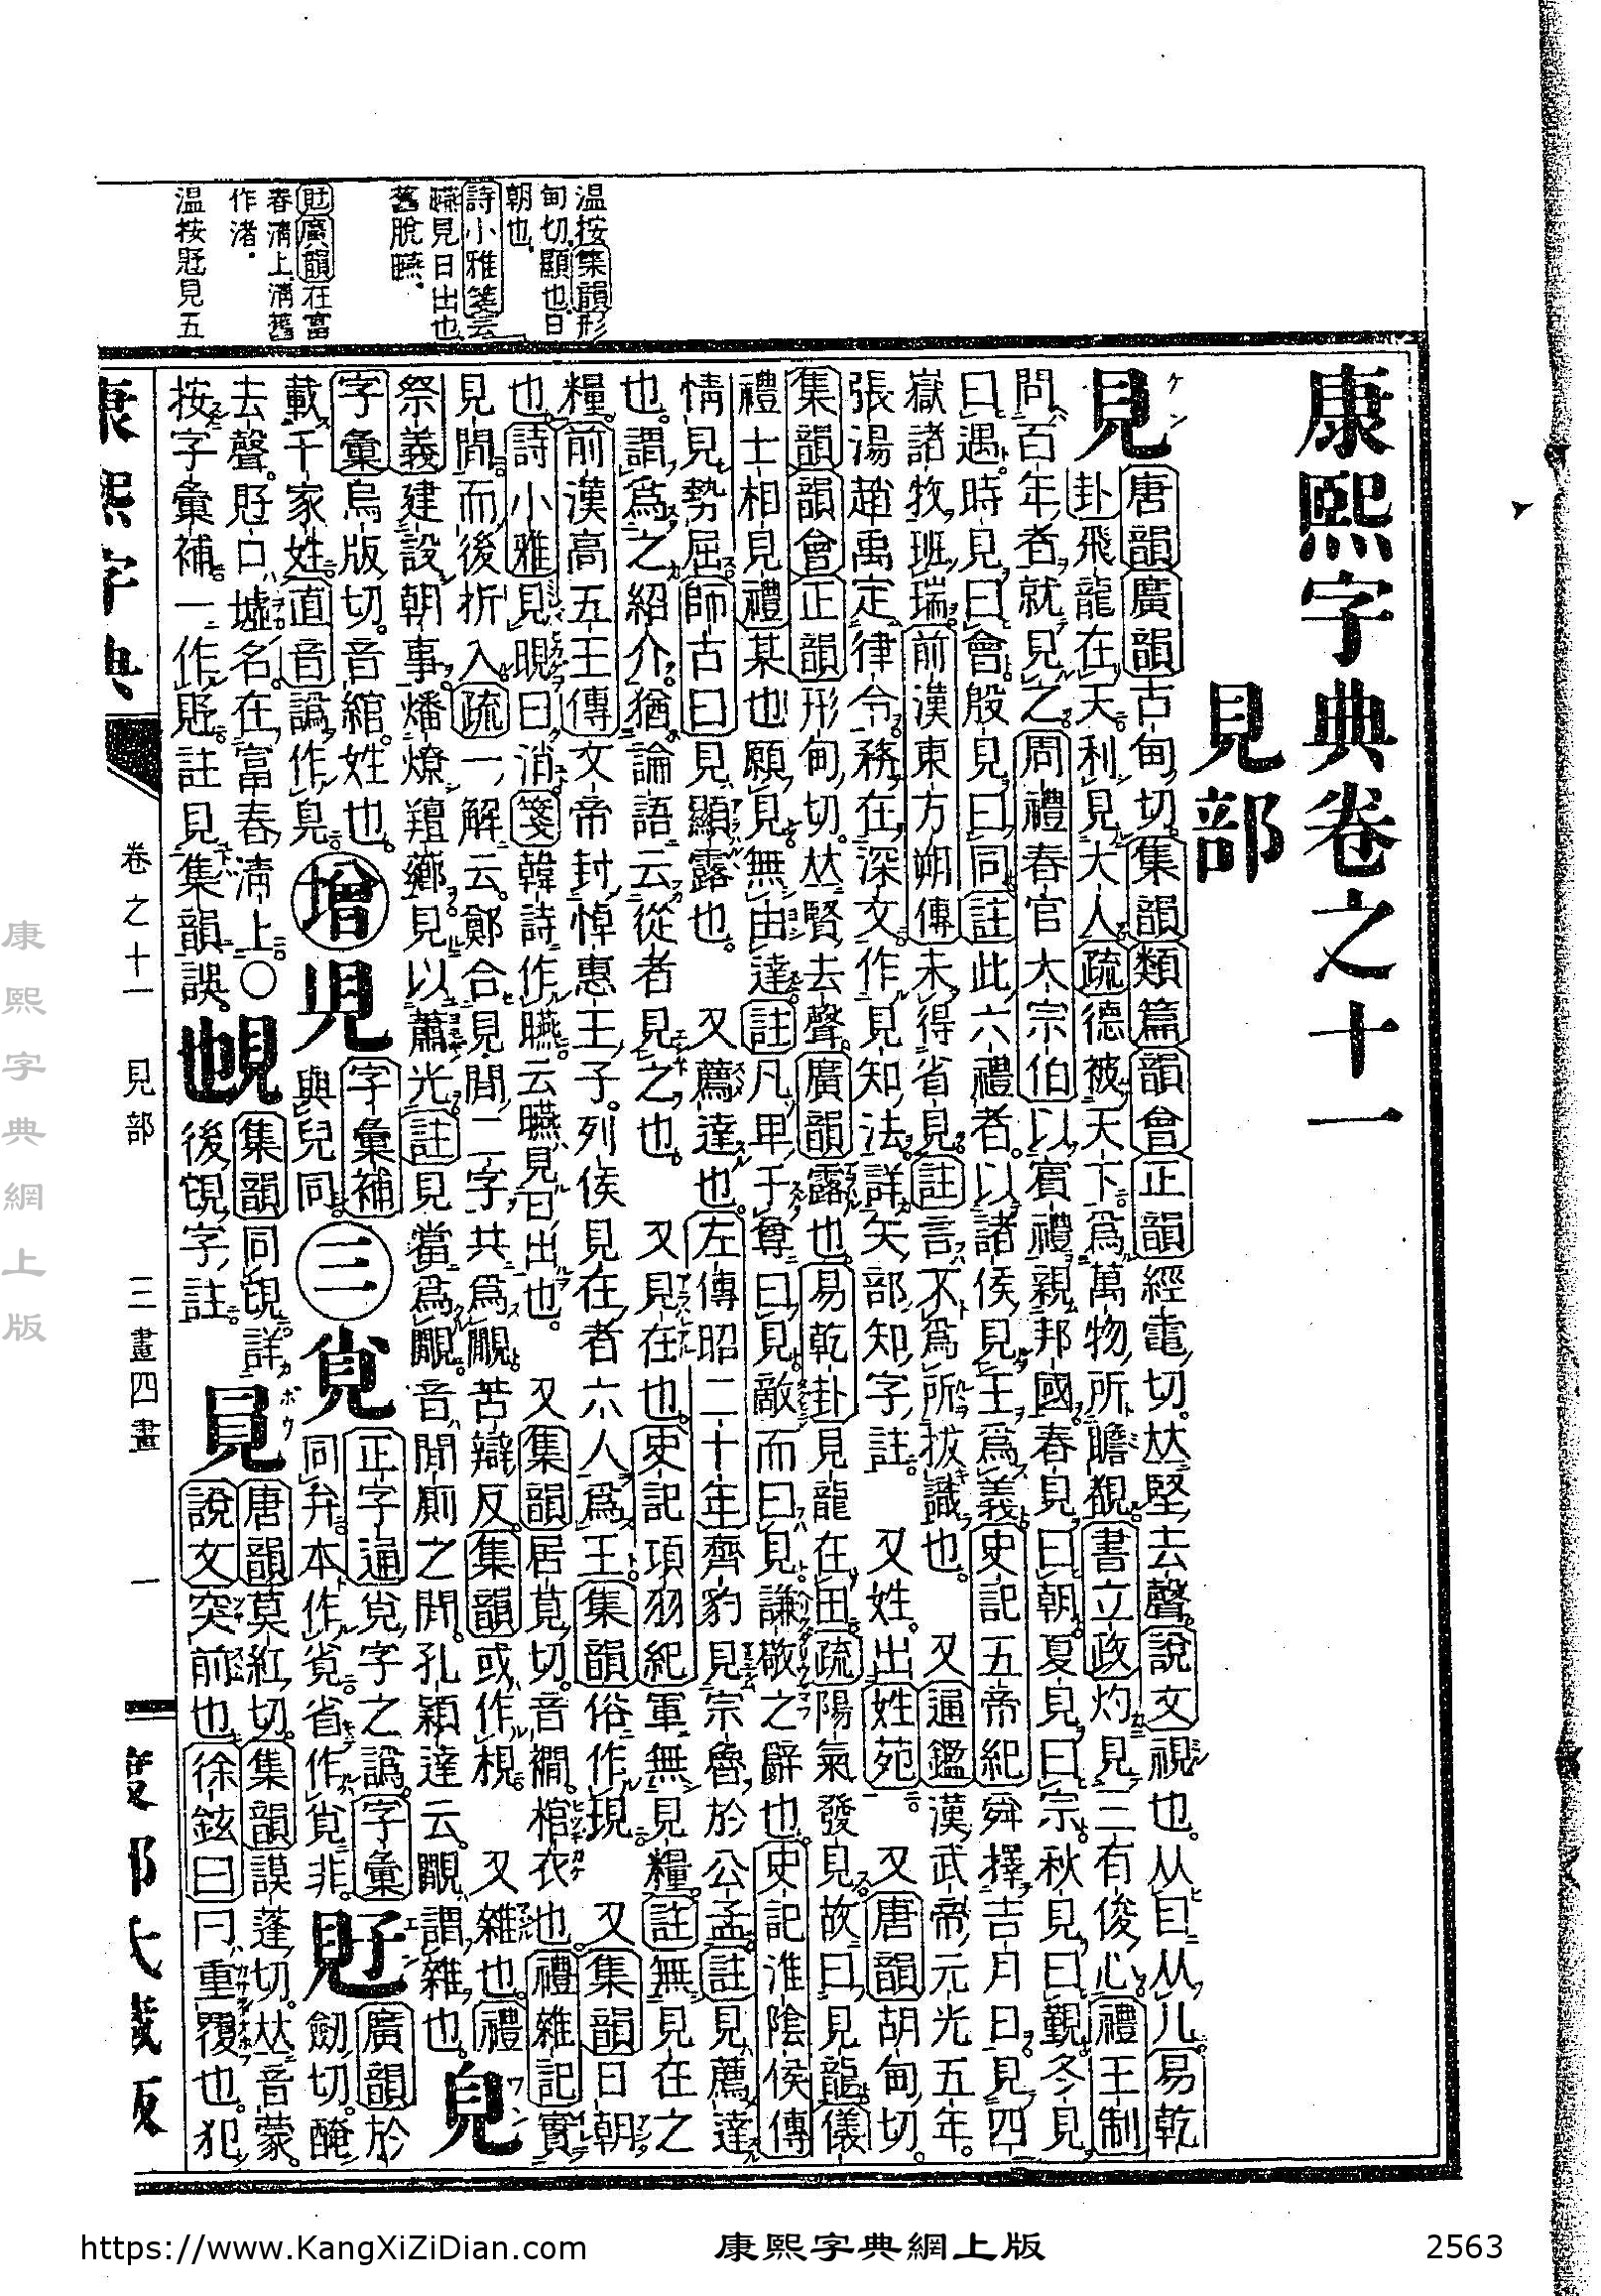 康熙字典卷之十一
見部
見
唐韻廣韻古甸切。集韻類篇韻會正韻經電切。𠀤堅去聲。說文視也。从目从儿。易乾
卦飛龍在天利見大人疏德被天下。爲萬物所瞻覩。書立政灼見三有俊心。禮王制
問百年者就見之。周禮春官大宗伯以賓禮親邦國。春見曰朝。夏見曰宗。秋見曰覲。冬見
曰遇。時見曰會。殷見曰同註此六禮者。以諸侯見王爲義。史記五帝紀舜擇吉月日。見四
嶽諸牧。班瑞。前漢東方朔傳未得省見。註言不爲所拔識也。 又通鑑漢武帝元光五年。
張湯趙禹定律令。務在深文。作見知法。詳矢部知字註。 又姓。出姓苑。 又唐韻胡甸切。
集韻韻會正韻形甸切。𠀤賢去聲。廣韻露也。易乾卦見龍在田。疏陽氣發見。故曰見龍。儀
禮士相見禮某也願見。無由達。註凡𤰞于尊曰見。敵而曰見。謙敬之辭也。史記淮陰侯傳
情見勢屈。師古曰見。顯露也。 又薦達也。左傳昭二十年齊豹見宗魯於公孟。註見薦達
也。謂爲之紹介。猶論語云從者見之也。 又見在也。史記項羽紀軍無見糧。註無見在之
糧。前漢高五王傳文帝封悼惠王子。列侯見在者六人爲王。集韻俗作現。 又集韻日朝
也。詩小雅見晛曰消。箋韓詩作曣。云曣見日出也。 又集韻居莧切。音襇。棺衣也。禮雜記實
見閒。而後折入。疏一解云。鄭合見閒二字共爲覵。苦辯反。集韻或作梘。 又雜也。禮
祭義建設朝事。燔燎羶薌。見以蕭光。註見當爲覵。音閒厠之閒。孔穎達云。覵謂雜也。
字彙烏版切。音綰。姓也。
載千家姓。直音譌作
增
字彙補
與兒同。
三
正字通 字之譌。字彙
同弁本作覍。省作 非。
廣韻於
劒切。醃
去聲。 口墟名。在富春渚上。○
按字彙補一作 註見集韻誤。
集韻同覘。詳
後覘字註。
唐韻莫紅切。集韻謨蓬切。𠀤音蒙。
說文突前也。徐鉉曰冃重覆也。犯
温按集韻形
甸切.顯也.日
朝也.
詩小雅箋云
曣見日出也
舊脫曣.
廣韻在富
春渚上.渚舊
作渚.
温按 見五
康熙字典
卷之十一 見部 三畫四畫 一
康熙字典網上版
https://www.KangXiZiDian.com
康熙字典網上版
2563